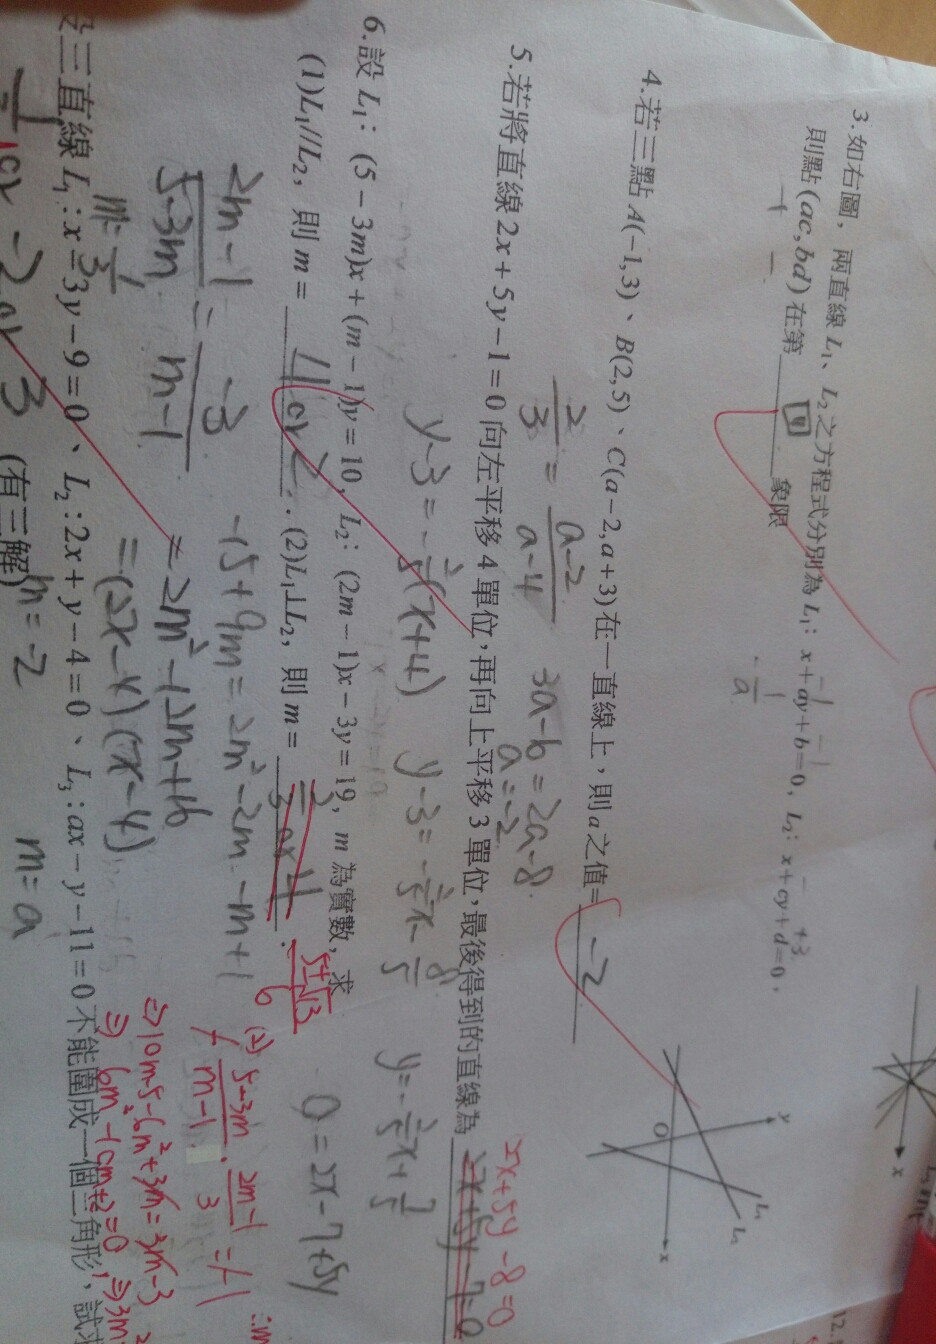 3.如右圖，兩直線 L₁、L₂之方程式分別為 L₁：x+ay+b=0，L₂：x+cy+d=0，
則點(ac,bd)在第 四 象限
y
O
x
L₁
L₂
4.若三點 A(−1,3)、B(2,5)、C(a−2,a+3)在一直線上，則a之值= −2
2/3 = a-2/a-4 3a-6=2a-8
a=-2
5.若將直線 2x+5y−1=0 向左平移 4 單位，再向上平移 3 單位，最後得到的直線為 2x+5y-7=0
2x+5y-8=0
y-3=-2/5(x+4) y-3=-2/5x-8/5 y=-2/5x+7/5
0=2x-7+5y
6.設 L₁：(5−3m)x+(m−1)y=10，L₂：(2m−1)x−3y=19，m 為實數，求
(1)L₁//L₂，則 m= 4 or 2 .(2)L₁⊥L₂，則 m=
5±√13/6
2m-1/5-3m = -3/m-1 -15+9m=2m²-2m-m+1
=2m²-12m+16
=(2x-4)(x-4)
(2) 5-3m/m-1 · 2m-1/3 = -1
⇒10m-5-6m²+3m=3m-3
⇒6m²-10m+2=0
三直線 L₁：x−3y−9=0、L₂：2x+y−4=0、L₃：ax−y−11=0不能圍成一個三角形，試求
(有三解)
m=-2
m=a